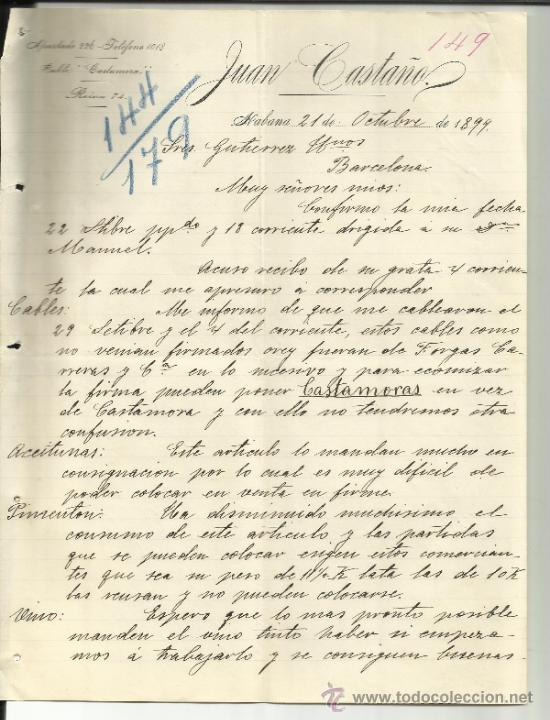 149
Apartado 226 - Teléfono 1012
Cable "Castamora"
Reina 74.
Juan Castaño.
144/179
Habana 21 de Octubre de 1899.
Sres Gutierrez Hnos
Barcelona.
Muy señores mios:
Confirmo la mia fecha
22 Stbre ppdo y 13 corriente dirigida á su
Manuel.
Acuso recibo de su grata 4 corrien-
te la cual me apresuro á corresponder
Cables: Me informo de que me cablearon el
29 Setibre y el 4 del corriente, estos cables como
no venian firmados crey fueran de Forgas Ca-
rreras y Cª en lo sucesivo y para economizar
la firma pueden poner Castamoras en vez
de Castamora y con ello no tendremos otra
confusion.
Aceitunas: Este articulo lo mandan mucho en
consignacion por lo cual es muy dificil de
poder colocar en venta en firme.
Pimenton: Ha disminuido muchisimo el
consumo de este articulo y las partidas
que se pueden colocar exigen estos comercian-
tes que sea su peso de 11½ K lata las de 10 K
las reusan y no pueden colocarse.
Vino: Espero que lo mas pronto posible
manden el vino tinto haber si empeza-
mos á trabajarlo y se consiguen buenas
www.todocoleccion.net